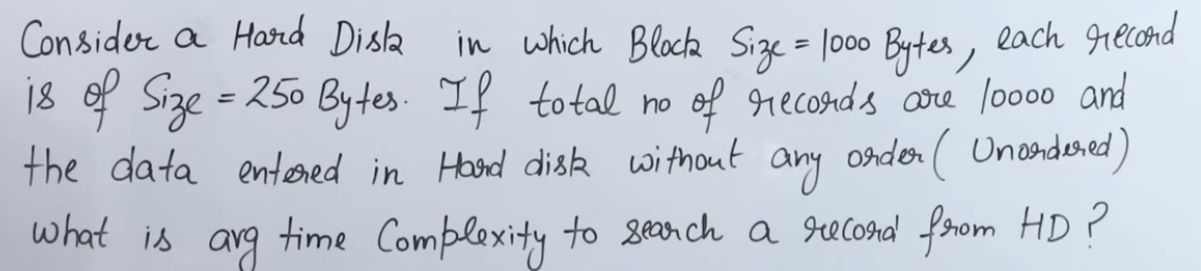 Consider a Hard Disk in which Block Size = 1000 Bytes, each record
is of Size = 250 Bytes. If total no of records are 10000 and
the data entered in Hard disk without any order ( Unordered)
what is avg time Complexity to search a record from HD ?